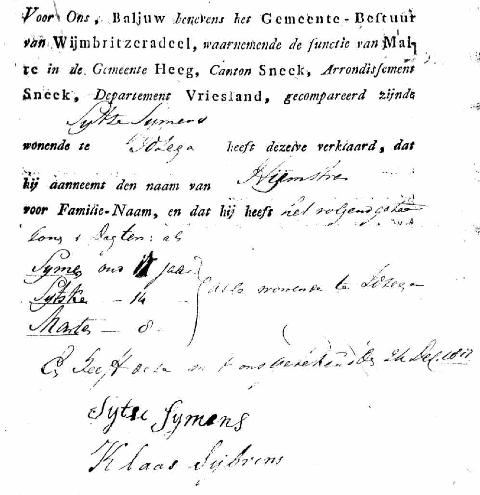 Voor Ons, Baljuw benevens het Gemeente-Bestuur
van Wijmbritzeradeel, waarnemende de functie van Mai-
re in de Gemeente Heeg, Canton Sneek, Arrondissement
Sneek, Departement Vriesland, gecompareerd zijnde
Sytse Symens
wonende te Idzega heeft dezelve verklaard, dat
hij aanneemt den naam van
voor Familie-Naam, en dat hij heeft het volgend getal
Zoons & Dogters: als
Symen oud jaar
Sytske – 14 alle wonende te Idzega
– 8
En heeft deze ons den 24 Dec. 1811
Sytse Symens
Klaas Sijbrens